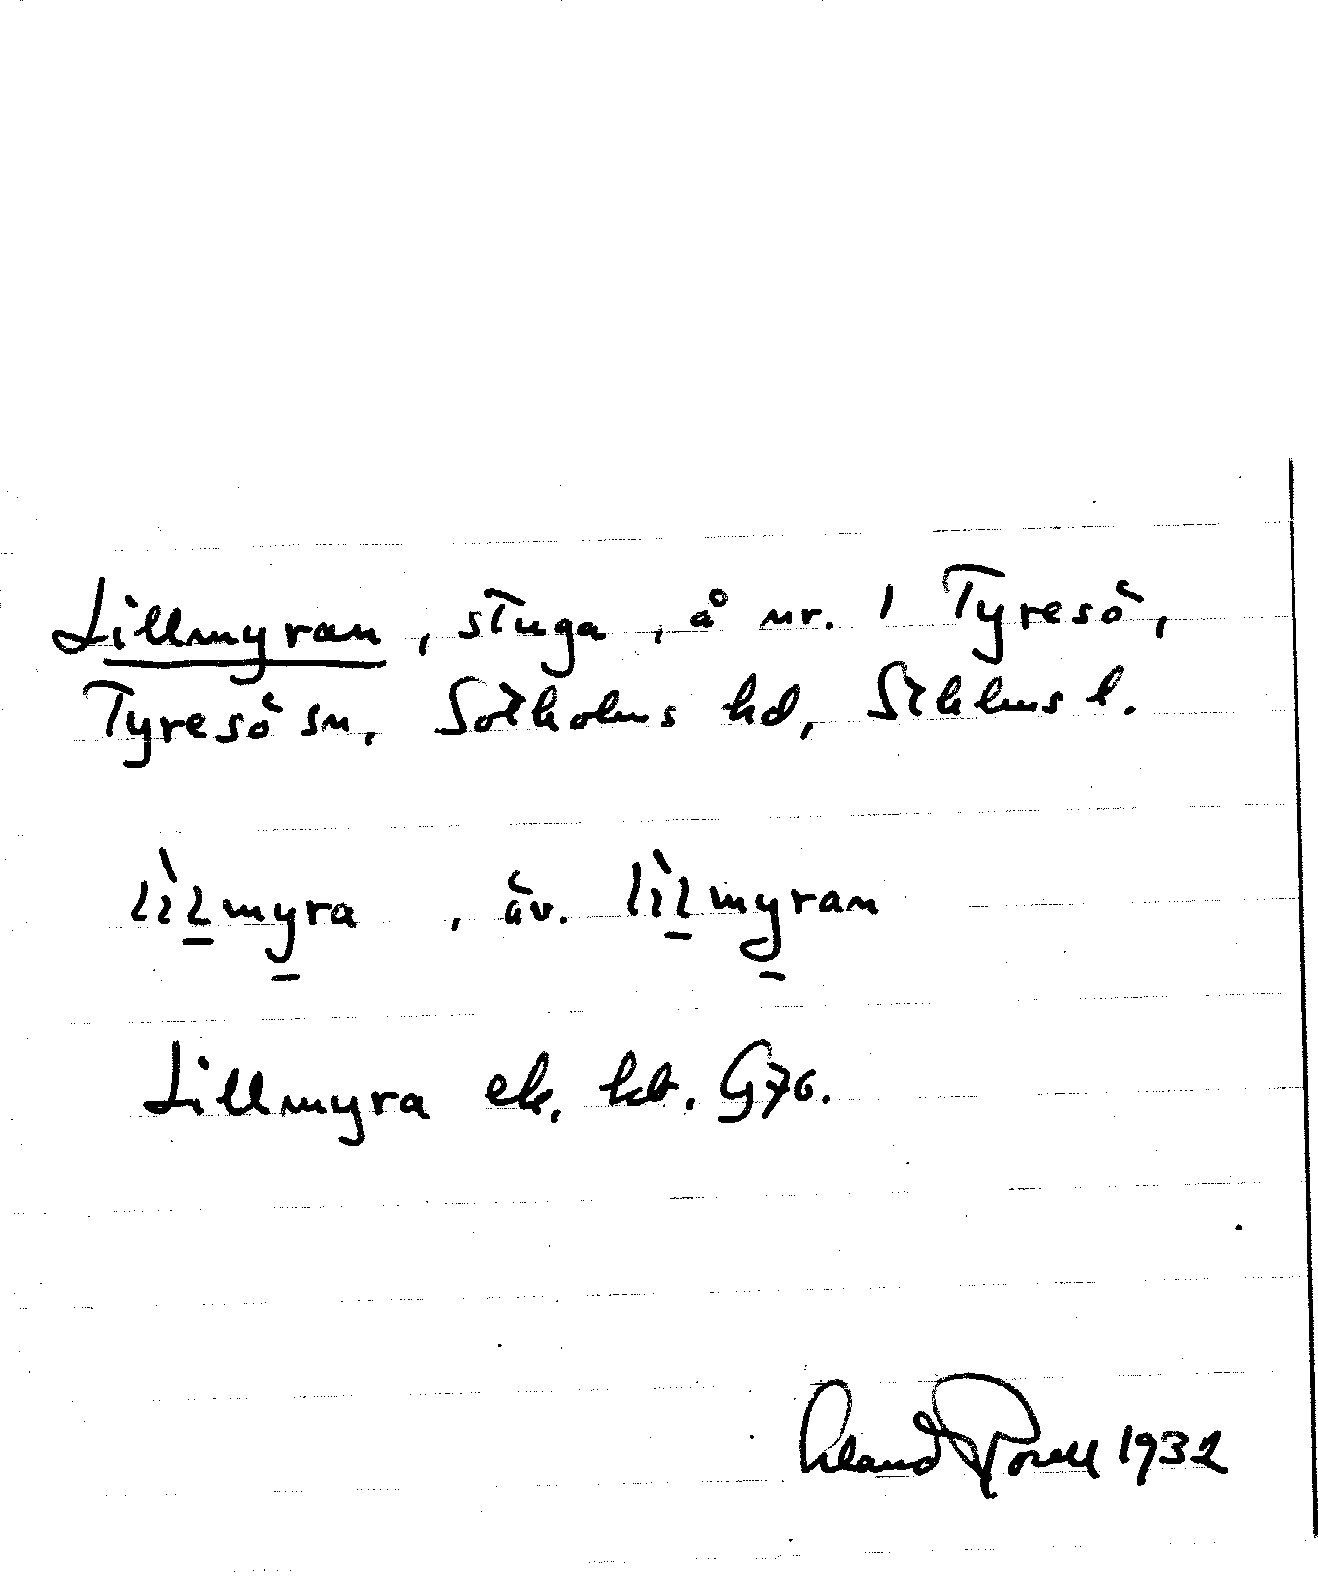 Lillmyran, stuga, å nr. 1 Tyresö,
Tyresö sn, Sotholms hd, Sthlms l.
lìlmyra , äv. lìlmyran
Lillmyra ek. kb. G76.
Erland Rosell 1932